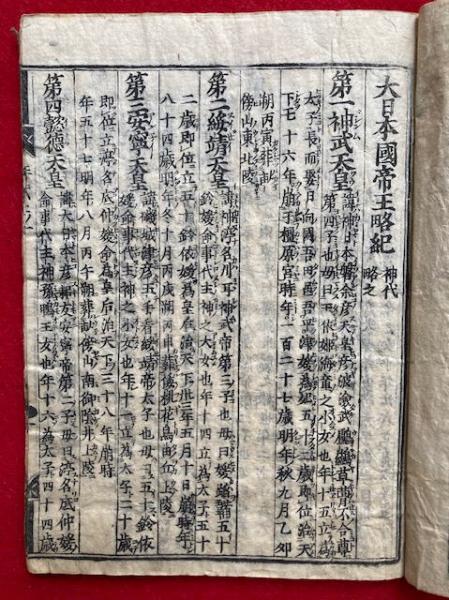 大日本國帝王略紀 神代
略之
第一神武天皇 諱神日本磐余彦天皇彦波瀲武鸕鷀草葺不合尊
第四子也母曰玉依姫海童之小女也年十五立為
太子長而娶日向國吾田邑吾平津媛為妃五十二歳即位治天
下七十六年崩于橿原宮時年一百二十七歳明年秋九月乙卯
朔丙寅葬畝
傍山東北陵
第二綏靖天皇 諱神渟名川耳神武帝第三子也母曰媛蹈鞴五十
鈴媛命事代主神之大女也年十四立為太子五十
二歳即位立五十鈴依媛為皇后治天下卅三年五月十日崩時年
八十四歳明年冬十月丙戌朔丙申葬倭桃花鳥田丘上陵
第三安寧天皇 諱磯城津彦玉手看綏靖帝太子也母曰五十鈴依
媛命事代主神之小女也年十一立為太子二十歳
即位立渟名底仲媛命為皇后治天下三十八年崩時
年五十七明年八月丙午朔葬畝傍山南御陰井上陵
第四懿徳天皇 諱大日本彦耜友安寧帝第二子母曰渟名底仲媛
命事代主神孫鴨王女也年十六為太子四十四歳